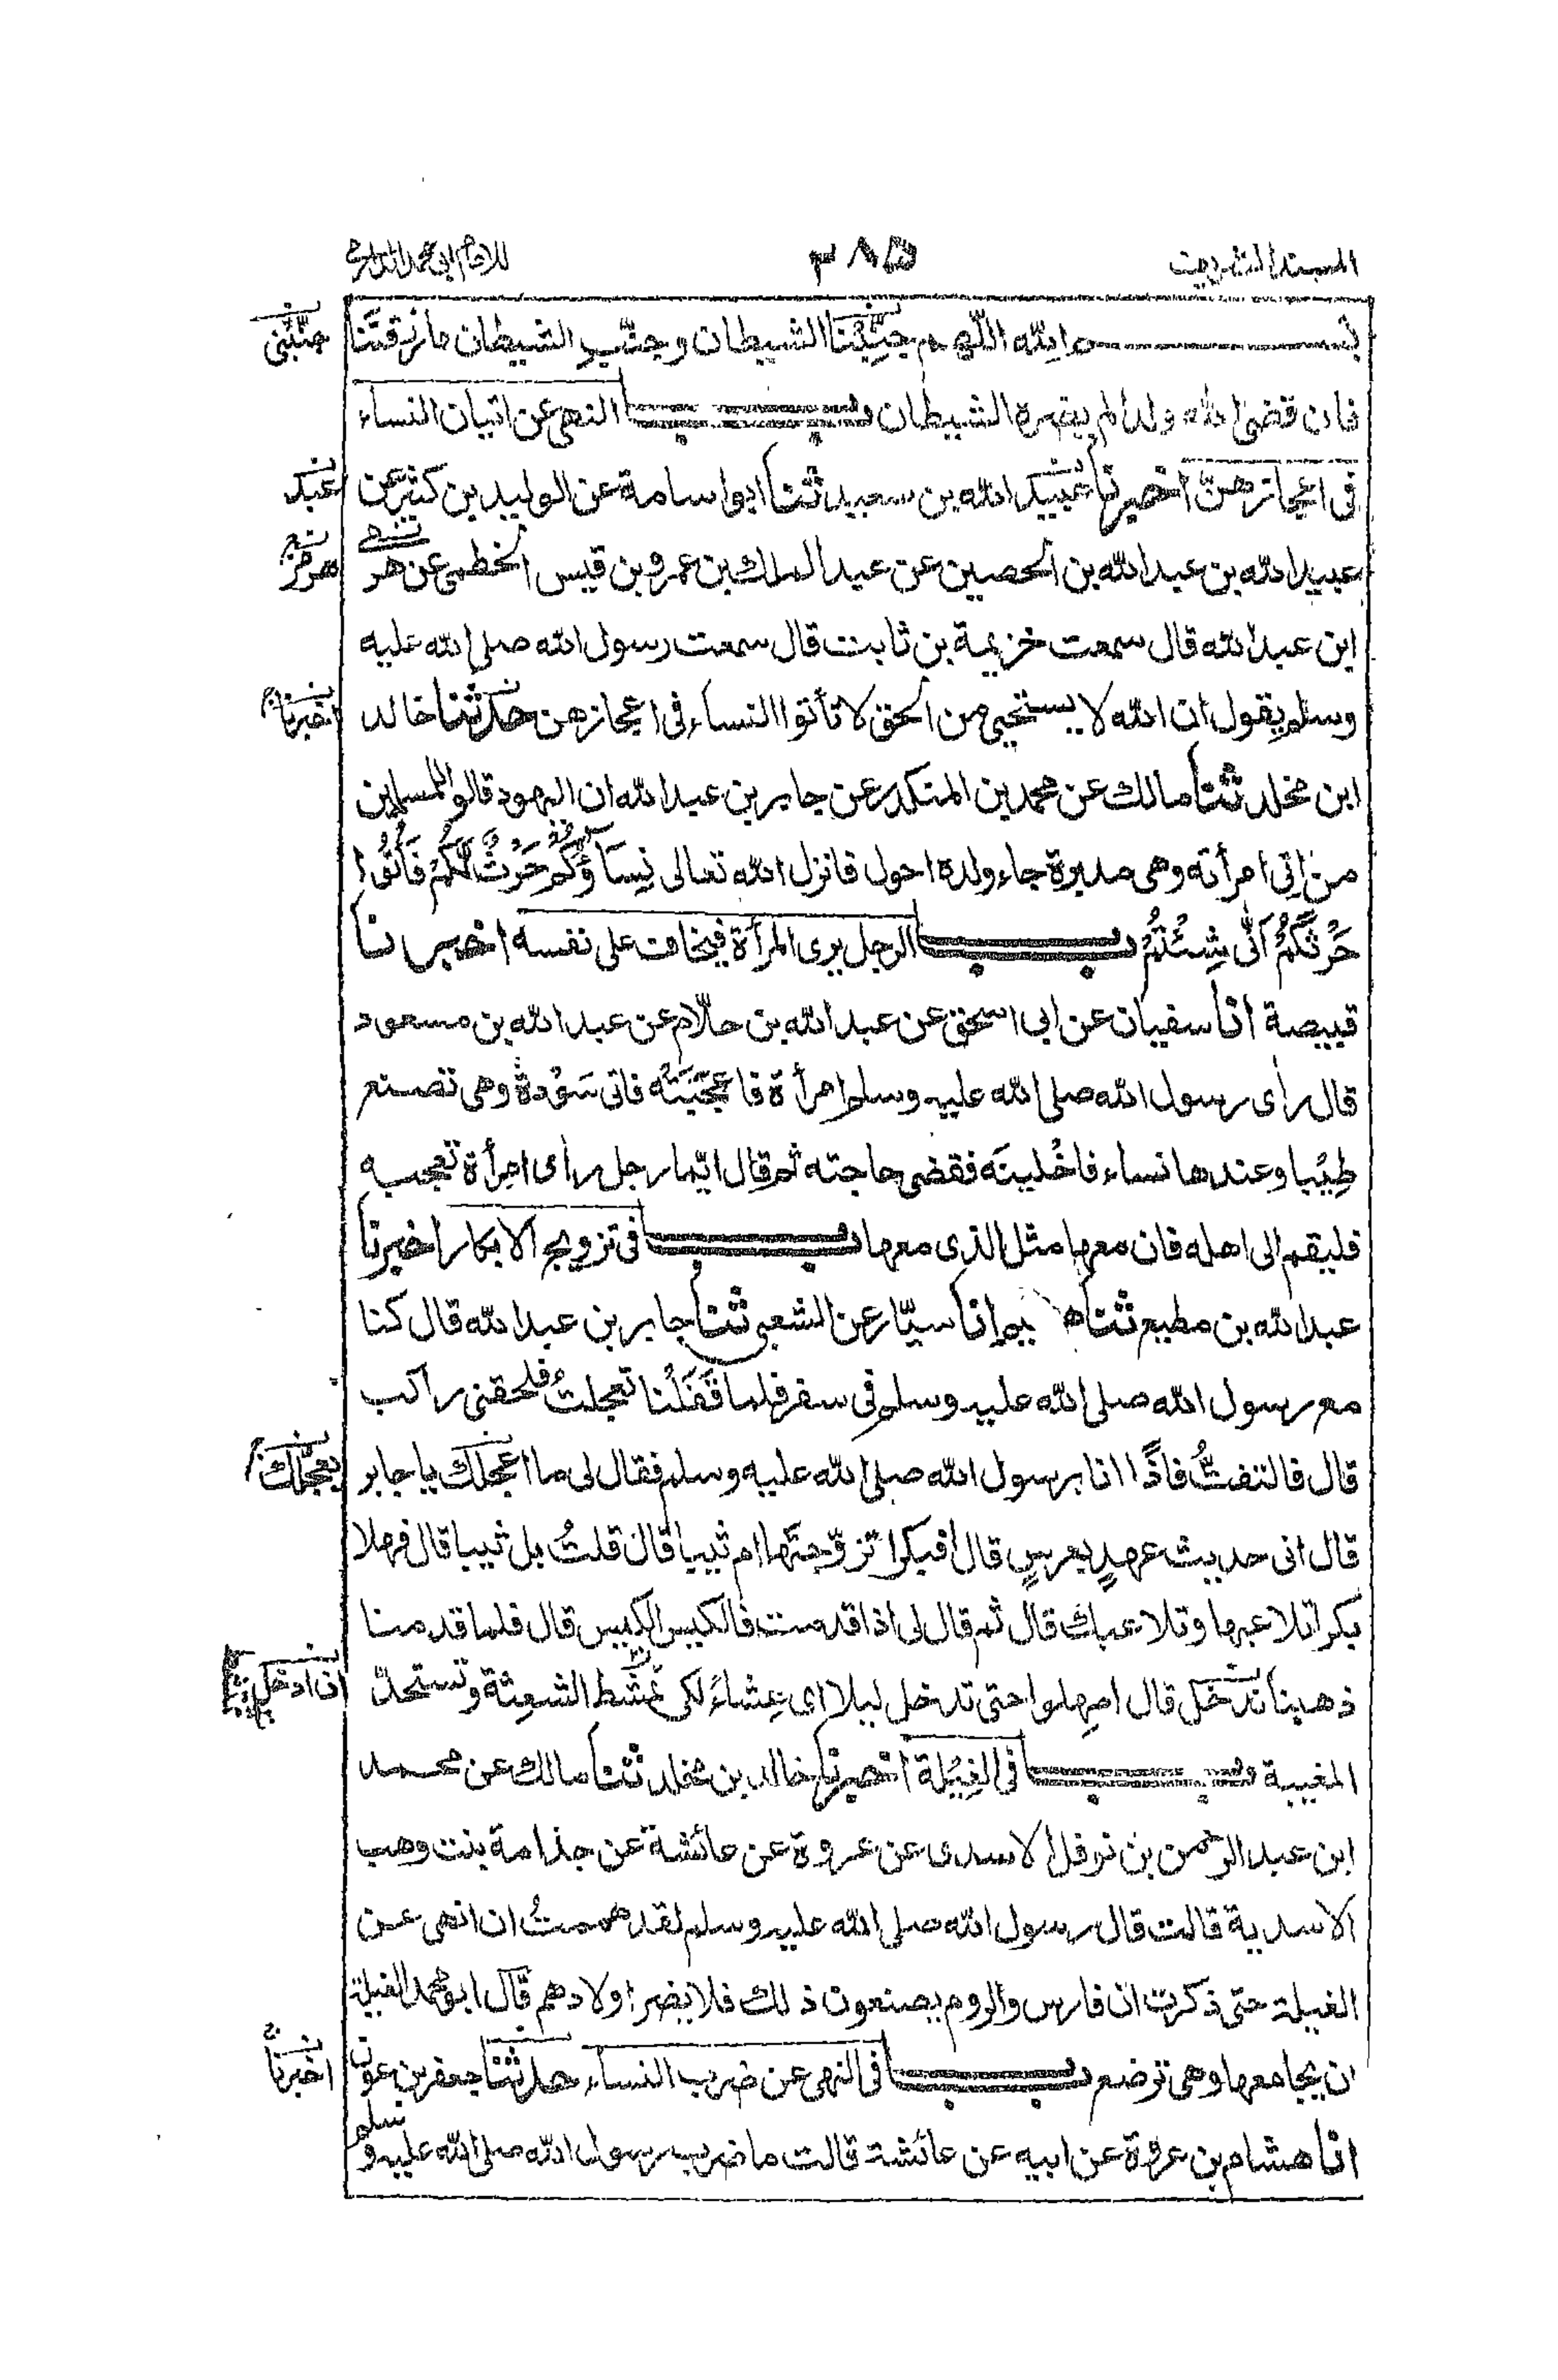 المسند الشريف ٢٨٥ للامام ابى محمد الدارمى
بسم الله اللّٰهم جنّبنا الشيطان وجنّب الشيطان ما رزقتنا
جنّبنى
فان قضى الله ولدا لم يضره الشيطان باب النهى عن اتيان النساء
فى اعجازهنّ اخبرنا عبيد الله بن سعيد ثنا ابو اسامة عن الوليد بن كثير عن
عبد
عبيد الله بن عبد الله بن الحصين عن عبد الملك بن عمرو بن قيس الخطمى عن هرمى
هرمز
ابن عبد الله قال سمعت خزيمة بن ثابت قال سمعت رسول الله صلى الله عليه
وسلم يقول ان الله لا يستحيى من الحق لا تأتوا النساء فى اعجازهن حدثنا خالد
اخبرنا
ابن مخلد ثنا مالك عن محمد بن المنكدر عن جابر بن عبد الله ان اليهود قالوا للمسلمين
من اتى امرأته وهى مدبرة جاء ولده احول فانزل الله تعالى نِسَاؤُكُمْ حَرْثٌ لَّكُمْ فَأْتُوا
حَرْثَكُمْ اَنّٰى شِئْتُمْ باب الرجل يرى المرأة فيخاف على نفسه اخبرنا
قبيصة انا سفيان عن ابى اسحق عن عبد الله بن حلّام عن عبد الله بن مسعود
قال رأى رسول الله صلى الله عليه وسلم امرأة فاعجَبَتْه فاتى سَوْدة وهى تصنع
طِيْبا وعندها نساء فاخْلَيْنَه فقضى حاجته ثم قال ايّما رجل رأى امرأة تعجبه
فليقم الى اهله فان معها مثل الذى معها باب فى تزويج الابكار اخبرنا
عبد الله بن مطيع ثنا هشيم انا سيّار عن الشعبى ثنا جابر بن عبد الله قال كنا
مع رسول الله صلى الله عليه وسلم فى سفر فلما قَفَلْنا تعجلتُ فلحقنى راكب
قال فالتفتُّ فاذًا انا برسول الله صلى الله عليه وسلم فقال لى ما اعجلك يا جابر
يعجلك
قال انى حديث عهدٍ بعرسٍ قال أفبكرا تزوّجتَها ام ثيبا قال قلتُ بل ثيبا قال فهلا
بكرا تلاعبها وتلاعبك قال ثم قال لى اذا قدمت فالكيس الكيس قال فلما قدمنا
ذهبنا ندخل قال امهلوا حتى تدخل ليلا اى عِشاءً لكى تمتشط الشعِثة وتستحدّ
ان ادخل
المغيبة باب فى الغِيْلة اخبرنا خالد بن مخلد ثنا مالك عن محمد
ابن عبد الرحمن بن نوفل الاسدى عن عروة عن عائشة عن جذامة بنت وهب
الاسدية قالت قال رسول الله صلى الله عليه وسلم لقد هممتُ ان انهى عن
الغيلة حتى ذكرت ان فارس والروم يصنعون ذلك فلا يضر اولادهم قال ابو محمد الغيلة
ان يجامعها وهى ترضع باب فى النهى عن ضرب النساء حدثنا جعفر بن عون
اخبرنا
انا هشام بن عروة عن ابيه عن عائشة قالت ما ضرب رسول الله صلى الله عليه وسلم